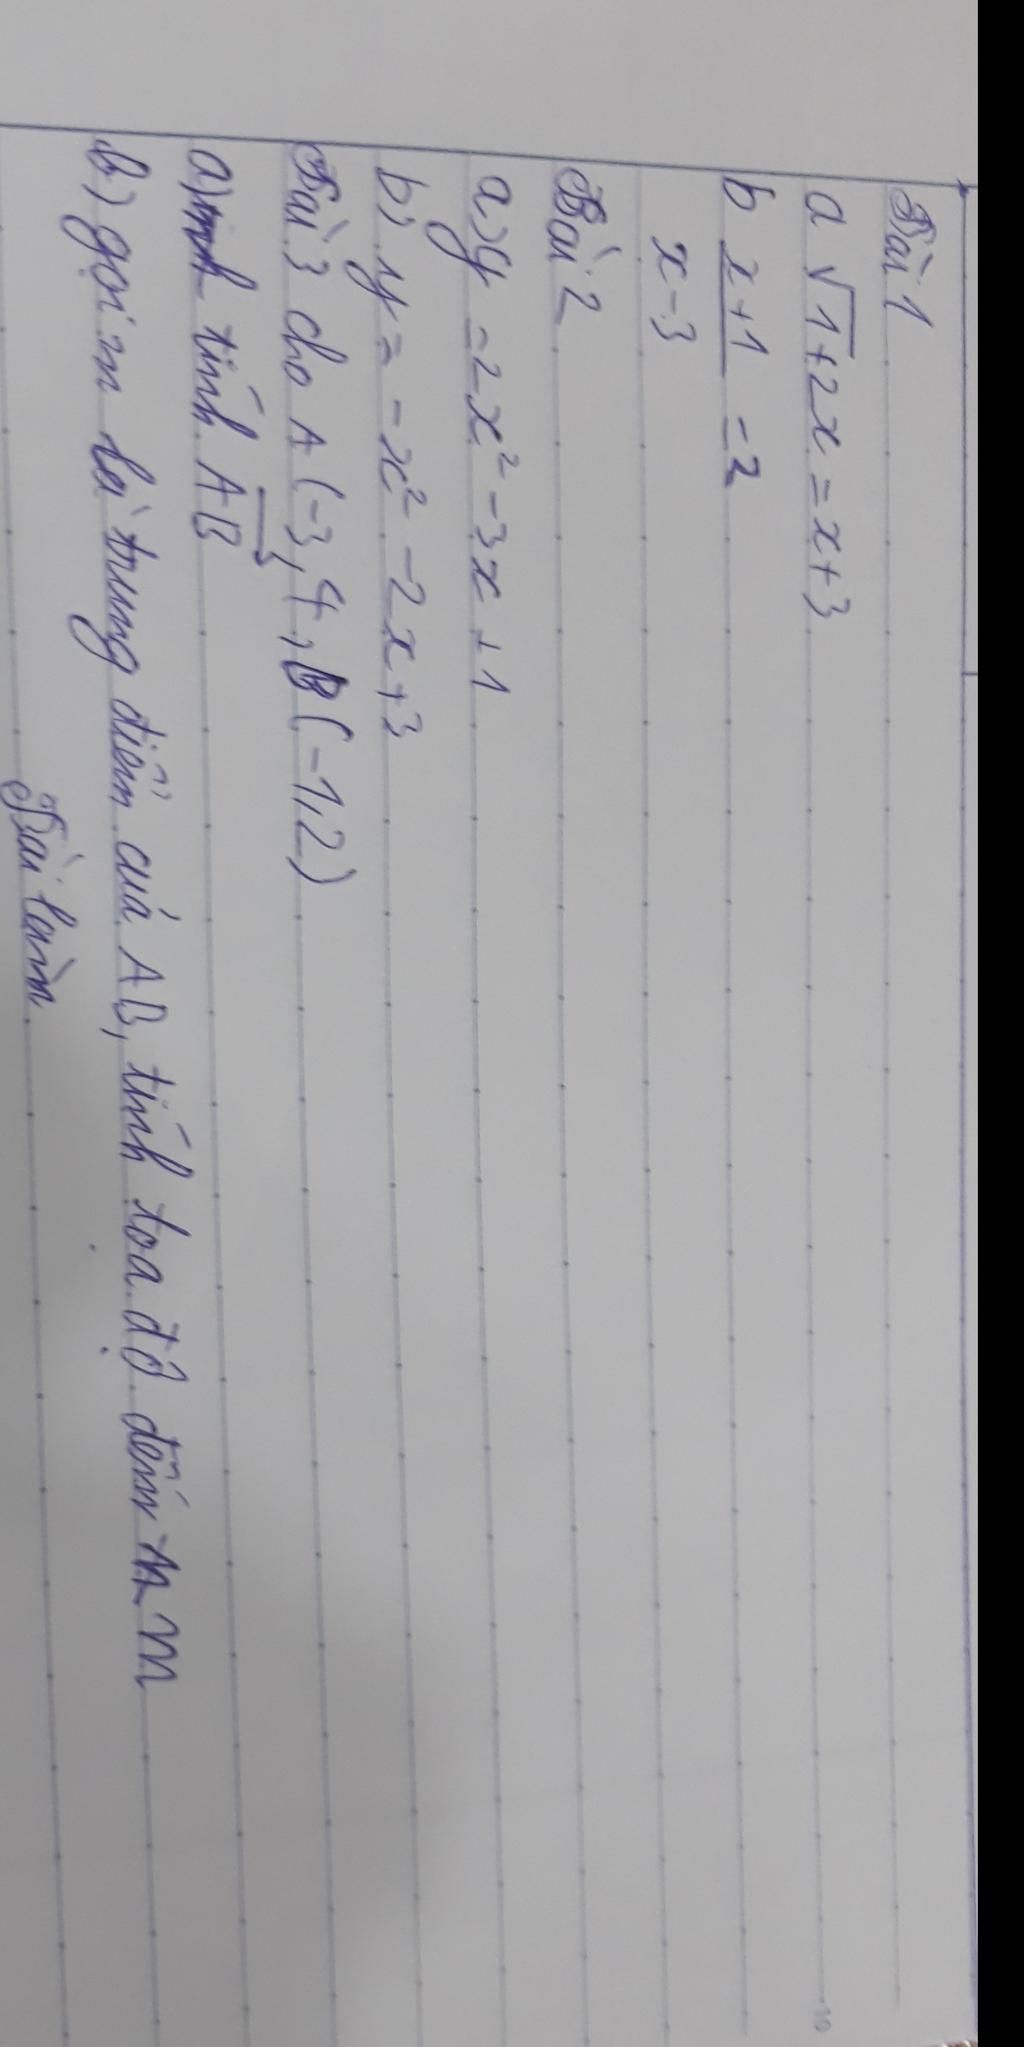 Bài 1
a √1+2x = x+3
b x+1 = 2
x-3
Bài 2
a) y = 2x² - 3x + 1
b) y = -x² - 2x + 3
Bài 3 cho A (-3, 4, B (-1, 2)
a) tính AB
b) gọi m là trung điểm cuả AB, tính toạ độ đểm m
Bài làm